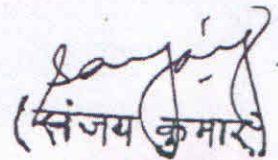 sanjay
(संजय कुमार)